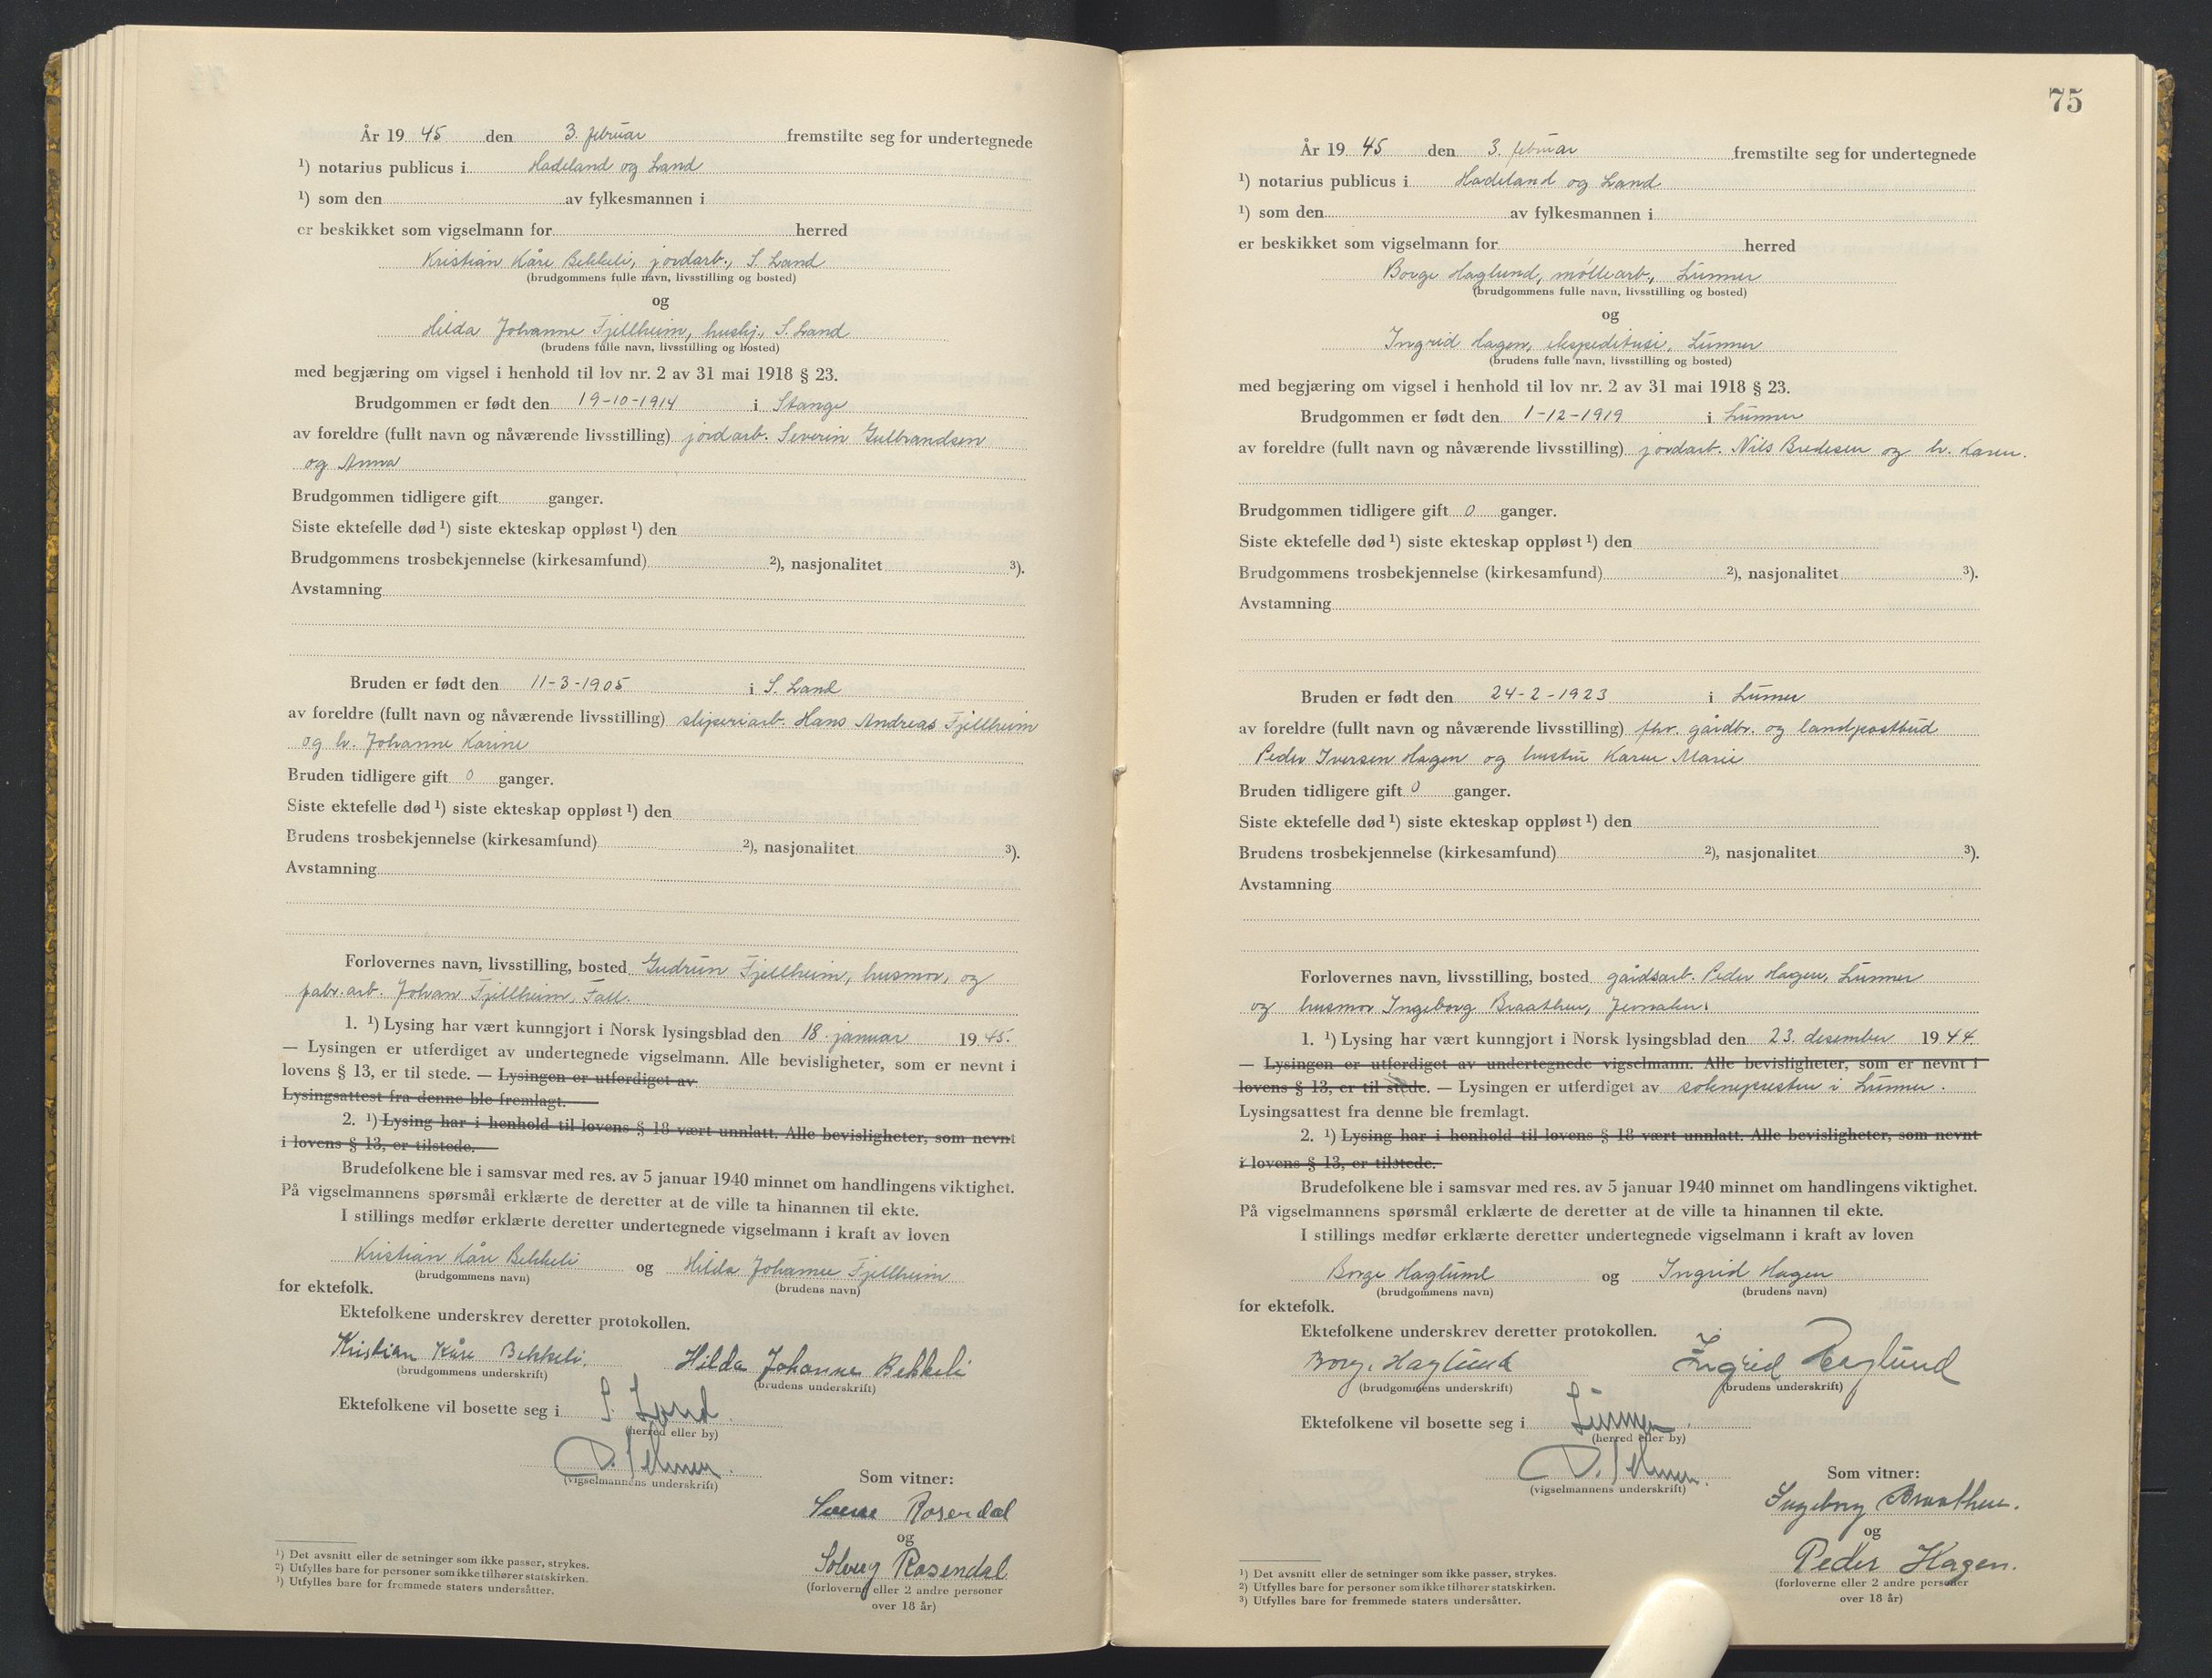 År 19 45 den 3. februar fremstilte seg for undertegnede
¹) notarius publicus i Hadeland og Land
¹) som den av fylkesmannen i
er beskikket som vigselmann for herred
Kristian Kåre Bekkeli, jordarb., S. Land
(brudgommens fulle navn, livsstilling og bosted)
og
Hilda Johanne Fjellheim, hushj., S. Land
(brudens fulle navn, livsstilling og bosted)
med begjæring om vigsel i henhold til lov nr. 2 av 31 mai 1918 § 23.
Brudgommen er født den 19-10-1914 i Stange
av foreldre (fullt navn og nåværende livsstilling) jordarb. Severin Gulbrandsen
og Anna
Brudgommen tidligere gift ganger.
Siste ektefelle død ¹) siste ekteskap oppløst ¹) den
Brudgommens trosbekjennelse (kirkesamfund) ²), nasjonalitet ³).
Avstamning
Bruden er født den 11-3-1905 i S. Land
av foreldre (fullt navn og nåværende livsstilling) sliperiarb. Hans Andreas Fjellheim
og h. Johanne Karine
Bruden tidligere gift 0 ganger.
Siste ektefelle død ¹) siste ekteskap oppløst ¹) den
Brudens trosbekjennelse (kirkesamfund) ²), nasjonalitet ³).
Avstamning
Forlovernes navn, livsstilling, bosted Gudrun Fjellheim, husmor, og
fabr.arb. Johan Fjellheim, Fall.
1. ¹) Lysing har vært kunngjort i Norsk lysingsblad den 18. januar 19 45.
— Lysingen er utferdiget av undertegnede vigselmann. Alle bevisligheter, som er nevnt i
lovens § 13, er til stede. — Lysingen er utferdiget av
Lysingsattest fra denne ble fremlagt.
2. ¹) Lysing har i henhold til lovens § 18 vært unnlatt. Alle bevisligheter, som nevnt
i lovens § 13, er tilstede.
Brudefolkene ble i samsvar med res. av 5 januar 1940 minnet om handlingens viktighet.
På vigselmannens spørsmål erklærte de deretter at de ville ta hinannen til ekte.
I stillings medfør erklærte deretter undertegnede vigselmann i kraft av loven
Kristian Kåre Bekkeli og Hilda Johanne Fjellheim
(brudgommens navn) (brudens navn)
for ektefolk.
Ektefolkene underskrev deretter protokollen.
Kristian Kåre Bekkeli. Hilda Johanne Bekkeli
(brudgommens underskrift) (brudens underskrift)
Ektefolkene vil bosette seg i S. Land.
(herred eller by)
(vigselmannens underskrift)
Som vitner:
Sverre Rosendal
og
Solveig Rosendal
(forloverne eller 2 andre personer
over 18 år)
¹) Det avsnitt eller de setninger som ikke passer, strykes.
²) Utfylles bare for personer som ikke tilhører statskirken.
³) Utfylles bare for fremmede staters undersåtter.
75
År 19 45 den 3. februar fremstilte seg for undertegnede
¹) notarius publicus i Hadeland og Land
¹) som den av fylkesmannen i
er beskikket som vigselmann for herred
Borge Haglund, møllearb., Lunner
(brudgommens fulle navn, livsstilling og bosted)
og
Ingrid Hagen, ekspeditrise, Lunner
(brudens fulle navn, livsstilling og bosted)
med begjæring om vigsel i henhold til lov nr. 2 av 31 mai 1918 § 23.
Brudgommen er født den 1-12-1919 i Lunner
av foreldre (fullt navn og nåværende livsstilling) jordarb. Nils Bredesen og h. Karen.
Brudgommen tidligere gift 0 ganger.
Siste ektefelle død ¹) siste ekteskap oppløst ¹) den
Brudgommens trosbekjennelse (kirkesamfund) ²), nasjonalitet ³).
Avstamning
Bruden er født den 24-2-1923 i Lunner
av foreldre (fullt navn og nåværende livsstilling) fhv. gårdbr. og landpostbud
Peder Iversen Hagen og hustru Karen Marie
Bruden tidligere gift 0 ganger.
Siste ektefelle død ¹) siste ekteskap oppløst ¹) den
Brudens trosbekjennelse (kirkesamfund) ²), nasjonalitet ³).
Avstamning
Forlovernes navn, livsstilling, bosted gårdsarb. Peder Hagen, Lunner
og husmor Ingeborg Braathen, Jevnaker.
1. ¹) Lysing har vært kunngjort i Norsk lysingsblad den 23. desember 19 44
— Lysingen er utferdiget av undertegnede vigselmann. Alle bevisligheter, som er nevnt i
lovens § 13, er til stede. — Lysingen er utferdiget av soknepresten i Lunner.
Lysingsattest fra denne ble fremlagt.
2. ¹) Lysing har i henhold til lovens § 18 vært unnlatt. Alle bevisligheter, som nevnt
i lovens § 13, er tilstede.
Brudefolkene ble i samsvar med res. av 5 januar 1940 minnet om handlingens viktighet.
På vigselmannens spørsmål erklærte de deretter at de ville ta hinannen til ekte.
I stillings medfør erklærte deretter undertegnede vigselmann i kraft av loven
Borge Haglund og Ingrid Hagen
(brudgommens navn) (brudens navn)
for ektefolk.
Ektefolkene underskrev deretter protokollen.
Borge Haglund Ingrid Haglund
(brudgommens underskrift) (brudens underskrift)
Ektefolkene vil bosette seg i Lunner.
(herred eller by)
(vigselmannens underskrift)
Som vitner:
Ingeborg Braathen.
og
Peder Hagen.
(forloverne eller 2 andre personer
over 18 år)
¹) Det avsnitt eller de setninger som ikke passer, strykes.
²) Utfylles bare for personer som ikke tilhører statskirken.
³) Utfylles bare for fremmede staters undersåtter.